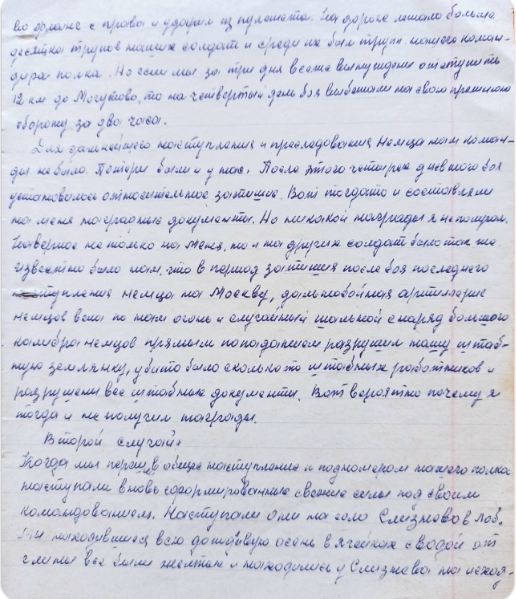 во фланге с права и ударил из пулемета. На дороге лежало больше
десятка трупов наших солдат и среди их был труп нашего коман-
дира полка. Но если мы за три дня все же вынуждены отступить
12 км до Могутово, то на четвертый день боя выбежали на свою прежнюю
оборону за два часа.
Для дальнейшего наступления и преследования немца нам коман-
ды не было. Потери были и у нас. После этого четырех дневного боя
установилось относительное затишие. Вот тогда то и составляли
на меня наградные документы. Но никакой награды я не получил.
Наверное не только на меня, но и на других солдат было так же
известно было нам, что в период затишия после боя последнего
наступления немца на Москву, дальнобойная артилерие
немцов вела по нам огонь и случайный шальной снаряд большого
калибра немцов прямым попаданием разрушил нашу штаб-
ную землянку, убито было сколько то штабных работников и
разрушены все штабные документы. Вот вероятно почему я
тогда и не получил награды.
Второй случай:
Когда мы перешли в общее наступление и под номером нашего полка
наступали вновь сформированные свежие силы под своим
командованием. Наступали они на село Слизнево в лоб.
Мы находившиеся всю дождивую осень в ячейках с водой от
глины все были желтые и находились у Слизнева на исход-